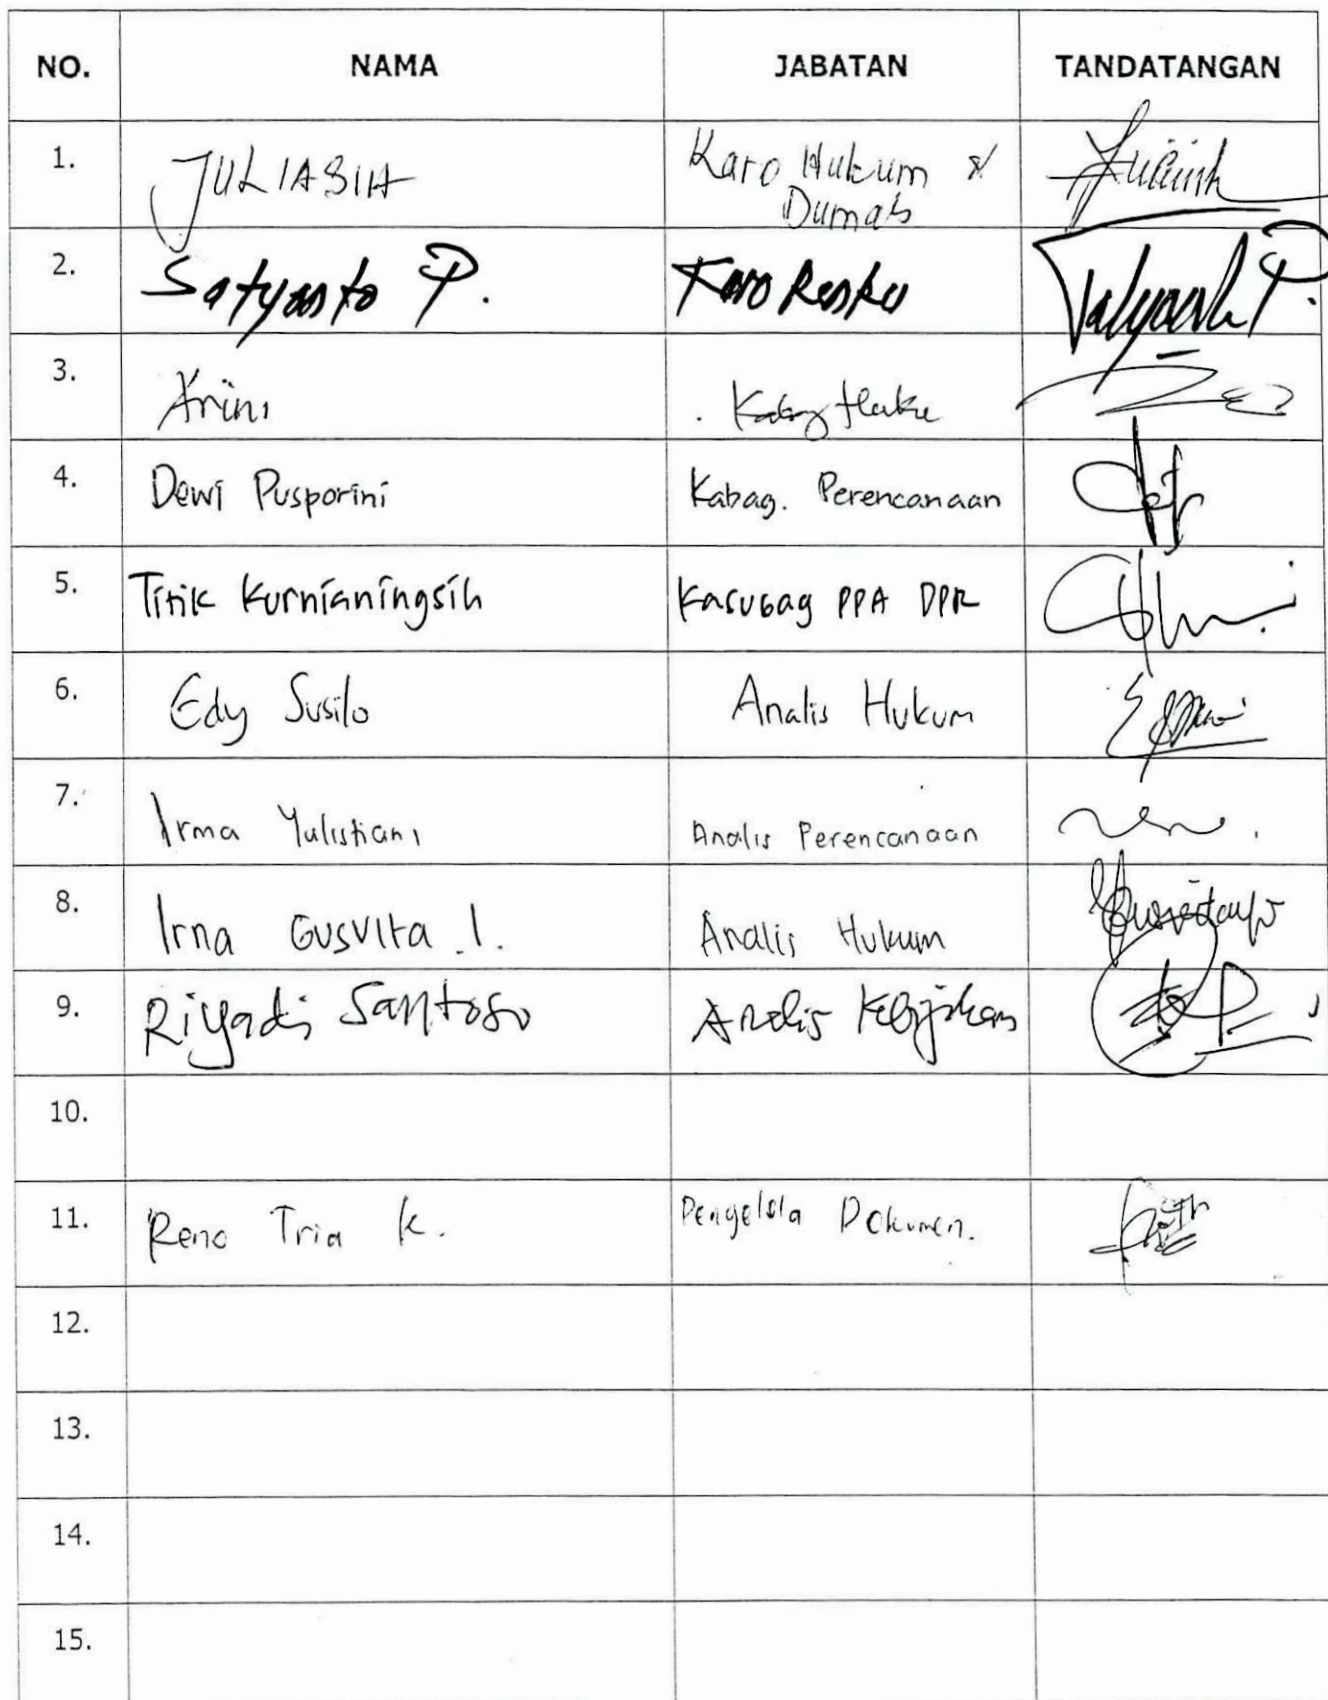 NO. NAMA JABATAN TANDATANGAN
1. JULIASIH Karo Hukum &
Dumas
2. Satyanto P. Karo
3. Arini Kabag
4. Dewi Pusporini Kabag. Perencanaan
5. Titik Kurnianingsih Kasubag PPA DPR
6. Edy Susilo Analis Hukum
7. Irma Yulistiani Analis Perencanaan
8. Irna Gusvita I. Analis Hukum
9. Riyadi Santoso Analis Kebijakan
10.
11. Reno Tria K. Pengelola Dokumen.
12.
13.
14.
15.